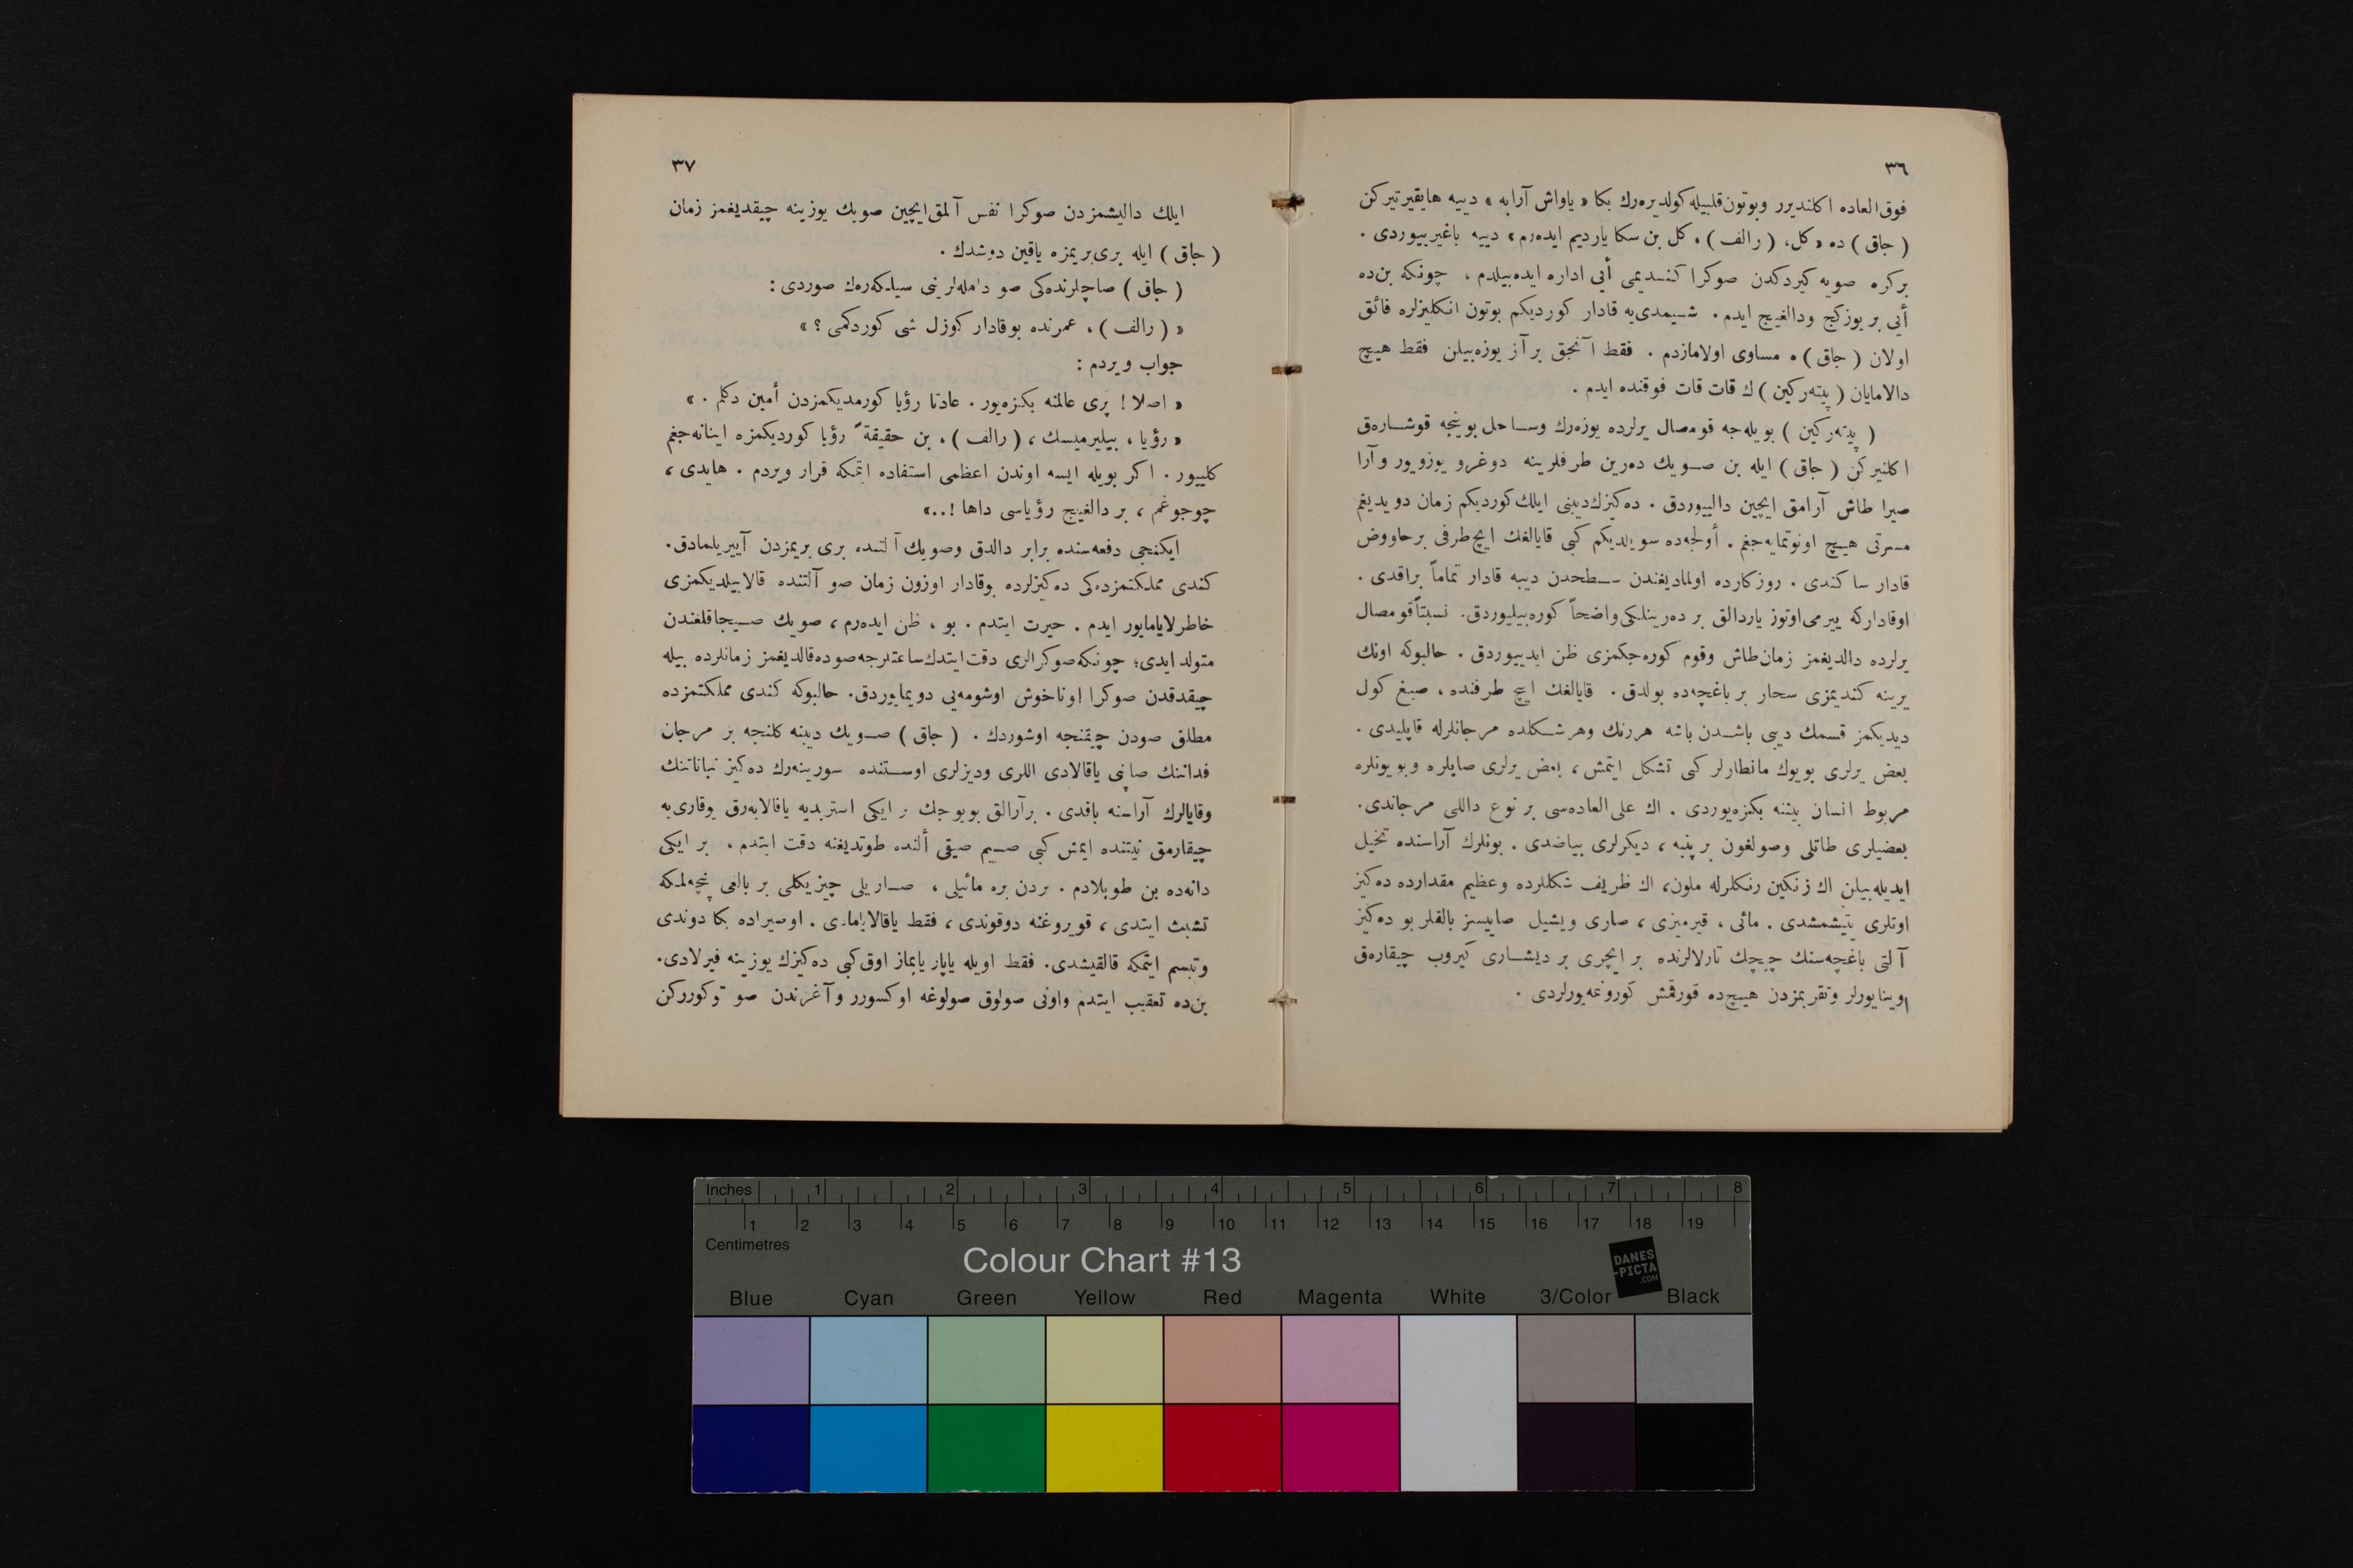 ٣٦
فوق العاده اكلنديرر وبوتون قلبيله كولديره‌رك بكا « ياواش آرابه » دييه هايقيرتيركن
( جاق ) ده « كل، ( رالف )، كل بن سكا يارديم ايده‌رم » دييه باغيرييوردى .
بركره صويه كيردكدن صوكرا كنديمى أيى اداره ايده‌بيلدم ، چونكه بن‌ده
أيى بر يوزكج ودالغيج ايدم . شيمدى‌يه قادار كورديكم بوتون انكليزلره فائق
اولان ( جاق ) ه مساوى اولامازدم . فقط آنجق بر آز يوزه‌بيلن فقط هيچ
دالامايان ( پيته‌ركين ) ك قات قات فوقنده ايدم .
( پيته‌ركين ) بويله‌جه قومصال يرلرده يوزه‌رك وساحل بوينجه قوشاره‌ق
اكلنيركن ( جاق ) ايله بن صويك ده‌رين طرفلرينه دوغرو يوزويور و آرا
صيرا طاش آرامق ايچين دالييوردق . ده‌كيزك ديبنى ايلك كورديكم زمان دويديغم
مسرتى هيچ اونوتمايه‌جغم . أولجه‌ده سويلديكم كبى قايالغك ايچ طرفى بر حاووض
قادار ساكندى . روزكارده اولماديغندن سطحدن ديبه قادار تماماً براقدى .
اوقاداركه ييرمى اوتوز ياردالق بر ده‌رينلكى واضحاً كوره‌بيلييوردق . نسبتاً قومصال
يرلرده دالديغمز زمان طاش وقوم كوره‌جكمزى ظن ايدييوردق . حالبوكه اونك
يرينه كنديمزى سحار بر باغچه‌ده بولدق . قايالغك ايچ طرفنده ، صيغ كول
ديديكمز قسمك ديبى باشدن باشه هررنك وهر شكلده مرجانلرله قاپليدى .
بعض يرلرى بويوك مانطارلر كبى تشكل ايتمش ، بعض يرلرى صاپلره و بويونلره
مربوط انسان بيننه بكزه‌يوردى . اك على العاده‌سى بر نوع داللى مرجاندى .
بعضيلرى طاتلى وصولغون بر پنبه ، ديكرلرى بياضدى . بونلرك آراسنده تخيل
ايديله‌بيلن اك زنكين رنكلرله ملون، اك ظريف شكللرده وعظيم مقدارده ده‌كيز
اوتلرى يتيشمشدى . مائى ، قيرميزى ، صارى ويشيل صاييسز بالقلر بو ده‌كيز
آلتى باغچه‌سنك چيچك تارلالرنده بر ايچرى بر ديشارى كيروب چيقاره‌ق
اوينايورلر وتقربمزدن هيچ‌ده قورقمش كورونمه‌يورلردى .
٣٧
ايلك داليشمزدن صوكرا نفس آلمق ايچين صويك يوزينه چيقديغمز زمان
( جاق ) ايله برى بريمزه ياقين دوشدك .
( جاق ) صاچلرنده‌كى صو دامله‌لرينى سيلكه‌رك صوردى :
« ( رالف ) ، عمرنده بوقادار كوزل شى كوردكمى ؟ »
جواب ويردم :
« اصلا ! پرى عالمنه بكزه‌يور . عادتا رؤيا كورمديكمزدن أمين دكلم . »
« رؤيا ، بيليرميسك ، ( رالف ) ، بن حقيقةً رؤيا كورديكمزه اينانه‌جغم
كلييور . اكر بويله ايسه اوندن اعظمى استفاده ايتمكه قرار ويردم . هايدى ،
چوجوغم ، بر دالغيج رؤياسى داها !.. »
ايكنجى دفعه‌سنده برابر دالدق وصويك آلتنده برى بريمزدن آييريلمادق .
كندى مملكتمزده‌كى ده‌كيزلرده بوقادار اوزون زمان صو آلتنده قالابيلديكمزى
خاطرلايامايور ايدم . حيرت ايتدم . بو ، ظن ايده‌رم ، صويك صيجاقلغندن
متولد ايدى؛ چونكه صوكرالرى دقت ايتدك ساعتلرجه صوده قالديغمز زمانلرده بيله
چيقدقدن صوكرا اوناخوش اوشومه‌يى دويمايوردق . حالبوكه كندى مملكتمزده
مطلق صودن چيقنجه اوشوردك . ( جاق ) صويك ديبنه كلنجه بر مرجان
فداننك صاپنى ياقالادى اللرى وديزلرى اوستنده سورينه‌رك ده‌كيز نباتاتنك
وقايالرك آراسنه باقدى . برآرالق بويوجك بر ايكى استريديه ياقالايه‌رق يوقارى‌يه
چيقارمق نيتنده ايمش كبى صيم صيقى ألنده طوتديغنه دقت ايتدم ، بر ايكى
دانه‌ده بن طوپلادم . بردن بره مائيلى ، صاريلى چيزيكلى بر بالغى پنچه‌لمكه
تشبث ايتدى ، قويروغنه دوقوندى ، فقط ياقالايامادى . اوصيراده بكا دوندى
وتبسم ايتمكه قالقيشدى . فقط اويله ياپار ياپماز اوق كبى ده‌كيزك يوزينه فيرلادى .
بن‌ده تعقيب ايتدم واونى صولوق صولوغه اوكسورر و آغزندن صو توكوروركن
Inches 1 2 3 4 5 6 7 8
1 2 3 4 5 6 7 8 9 10 11 12 13 14 15 16 17 18 19
Centimetres
Colour Chart #13
DANES
-PICTA
.COM
Blue Cyan Green Yellow Red Magenta White 3/Color Black